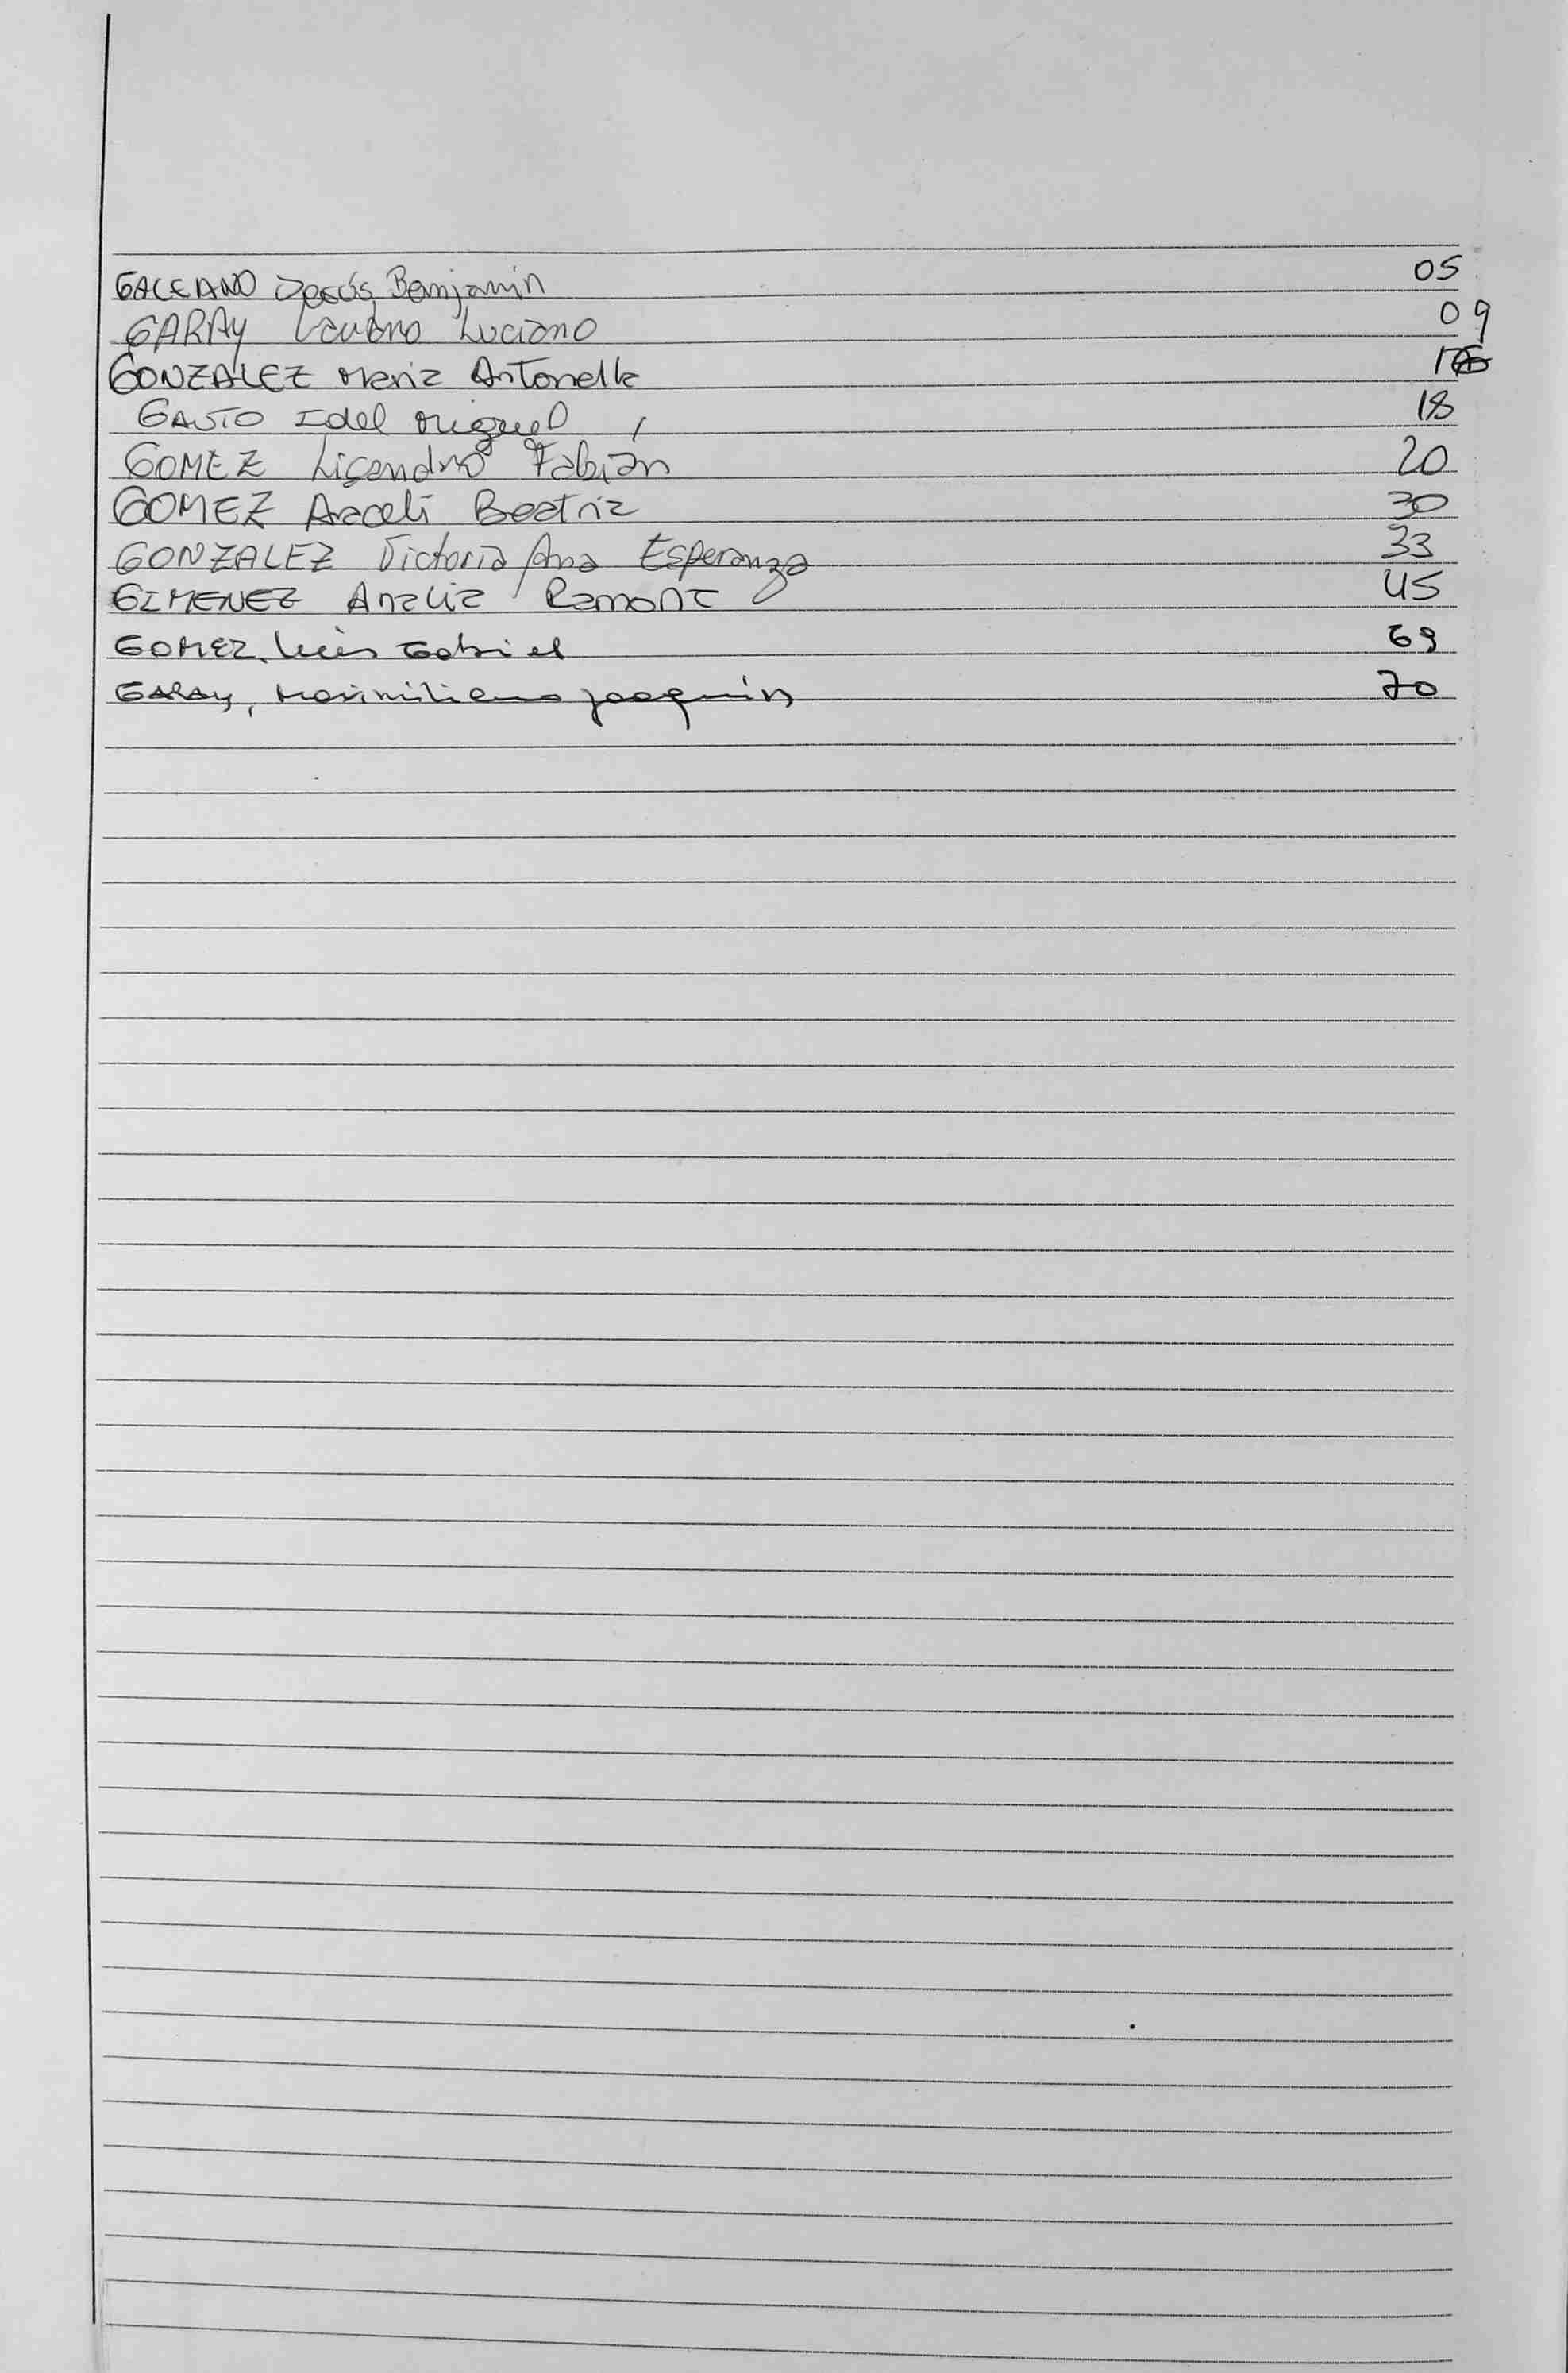 GALEANO Jesús Benjamín 05
GARAY Lautaro Luciano 09
GONZALEZ Maria Antonella
GAUTO Idel Miguel 18
GOMEZ Liçandro Fabián 20
GOMEZ Araceli Beatriz 30
GONZALEZ Victoria Ana Esperanza 33
GIMENEZ Analia Ramona 45
GOMEZ, Luis Gabriel 69
GARAY, Maximiliano Joaquin 70